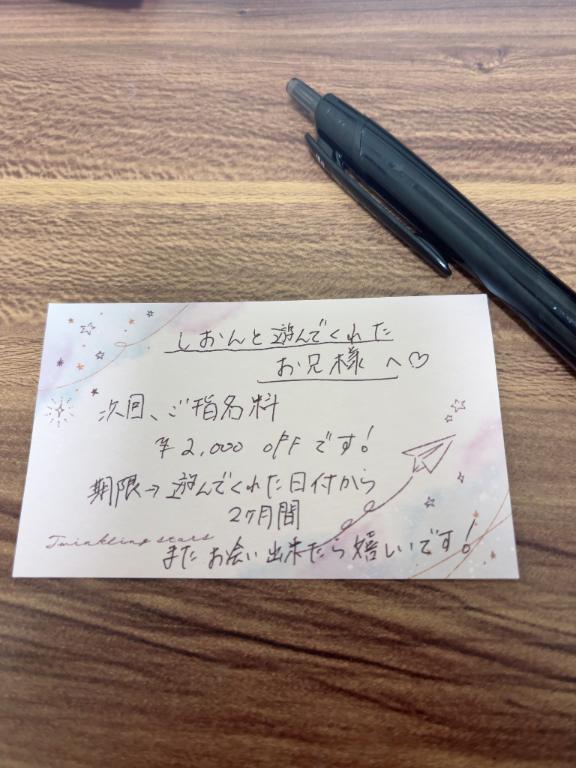 しおんと遊んでくれた
お兄様 へ♡
次回、ご指名料
¥2,000 OFFです!
期限→遊んでくれた日付から
2ヶ月間
Twinkling stars
またお会い出来たら嬉しいです!